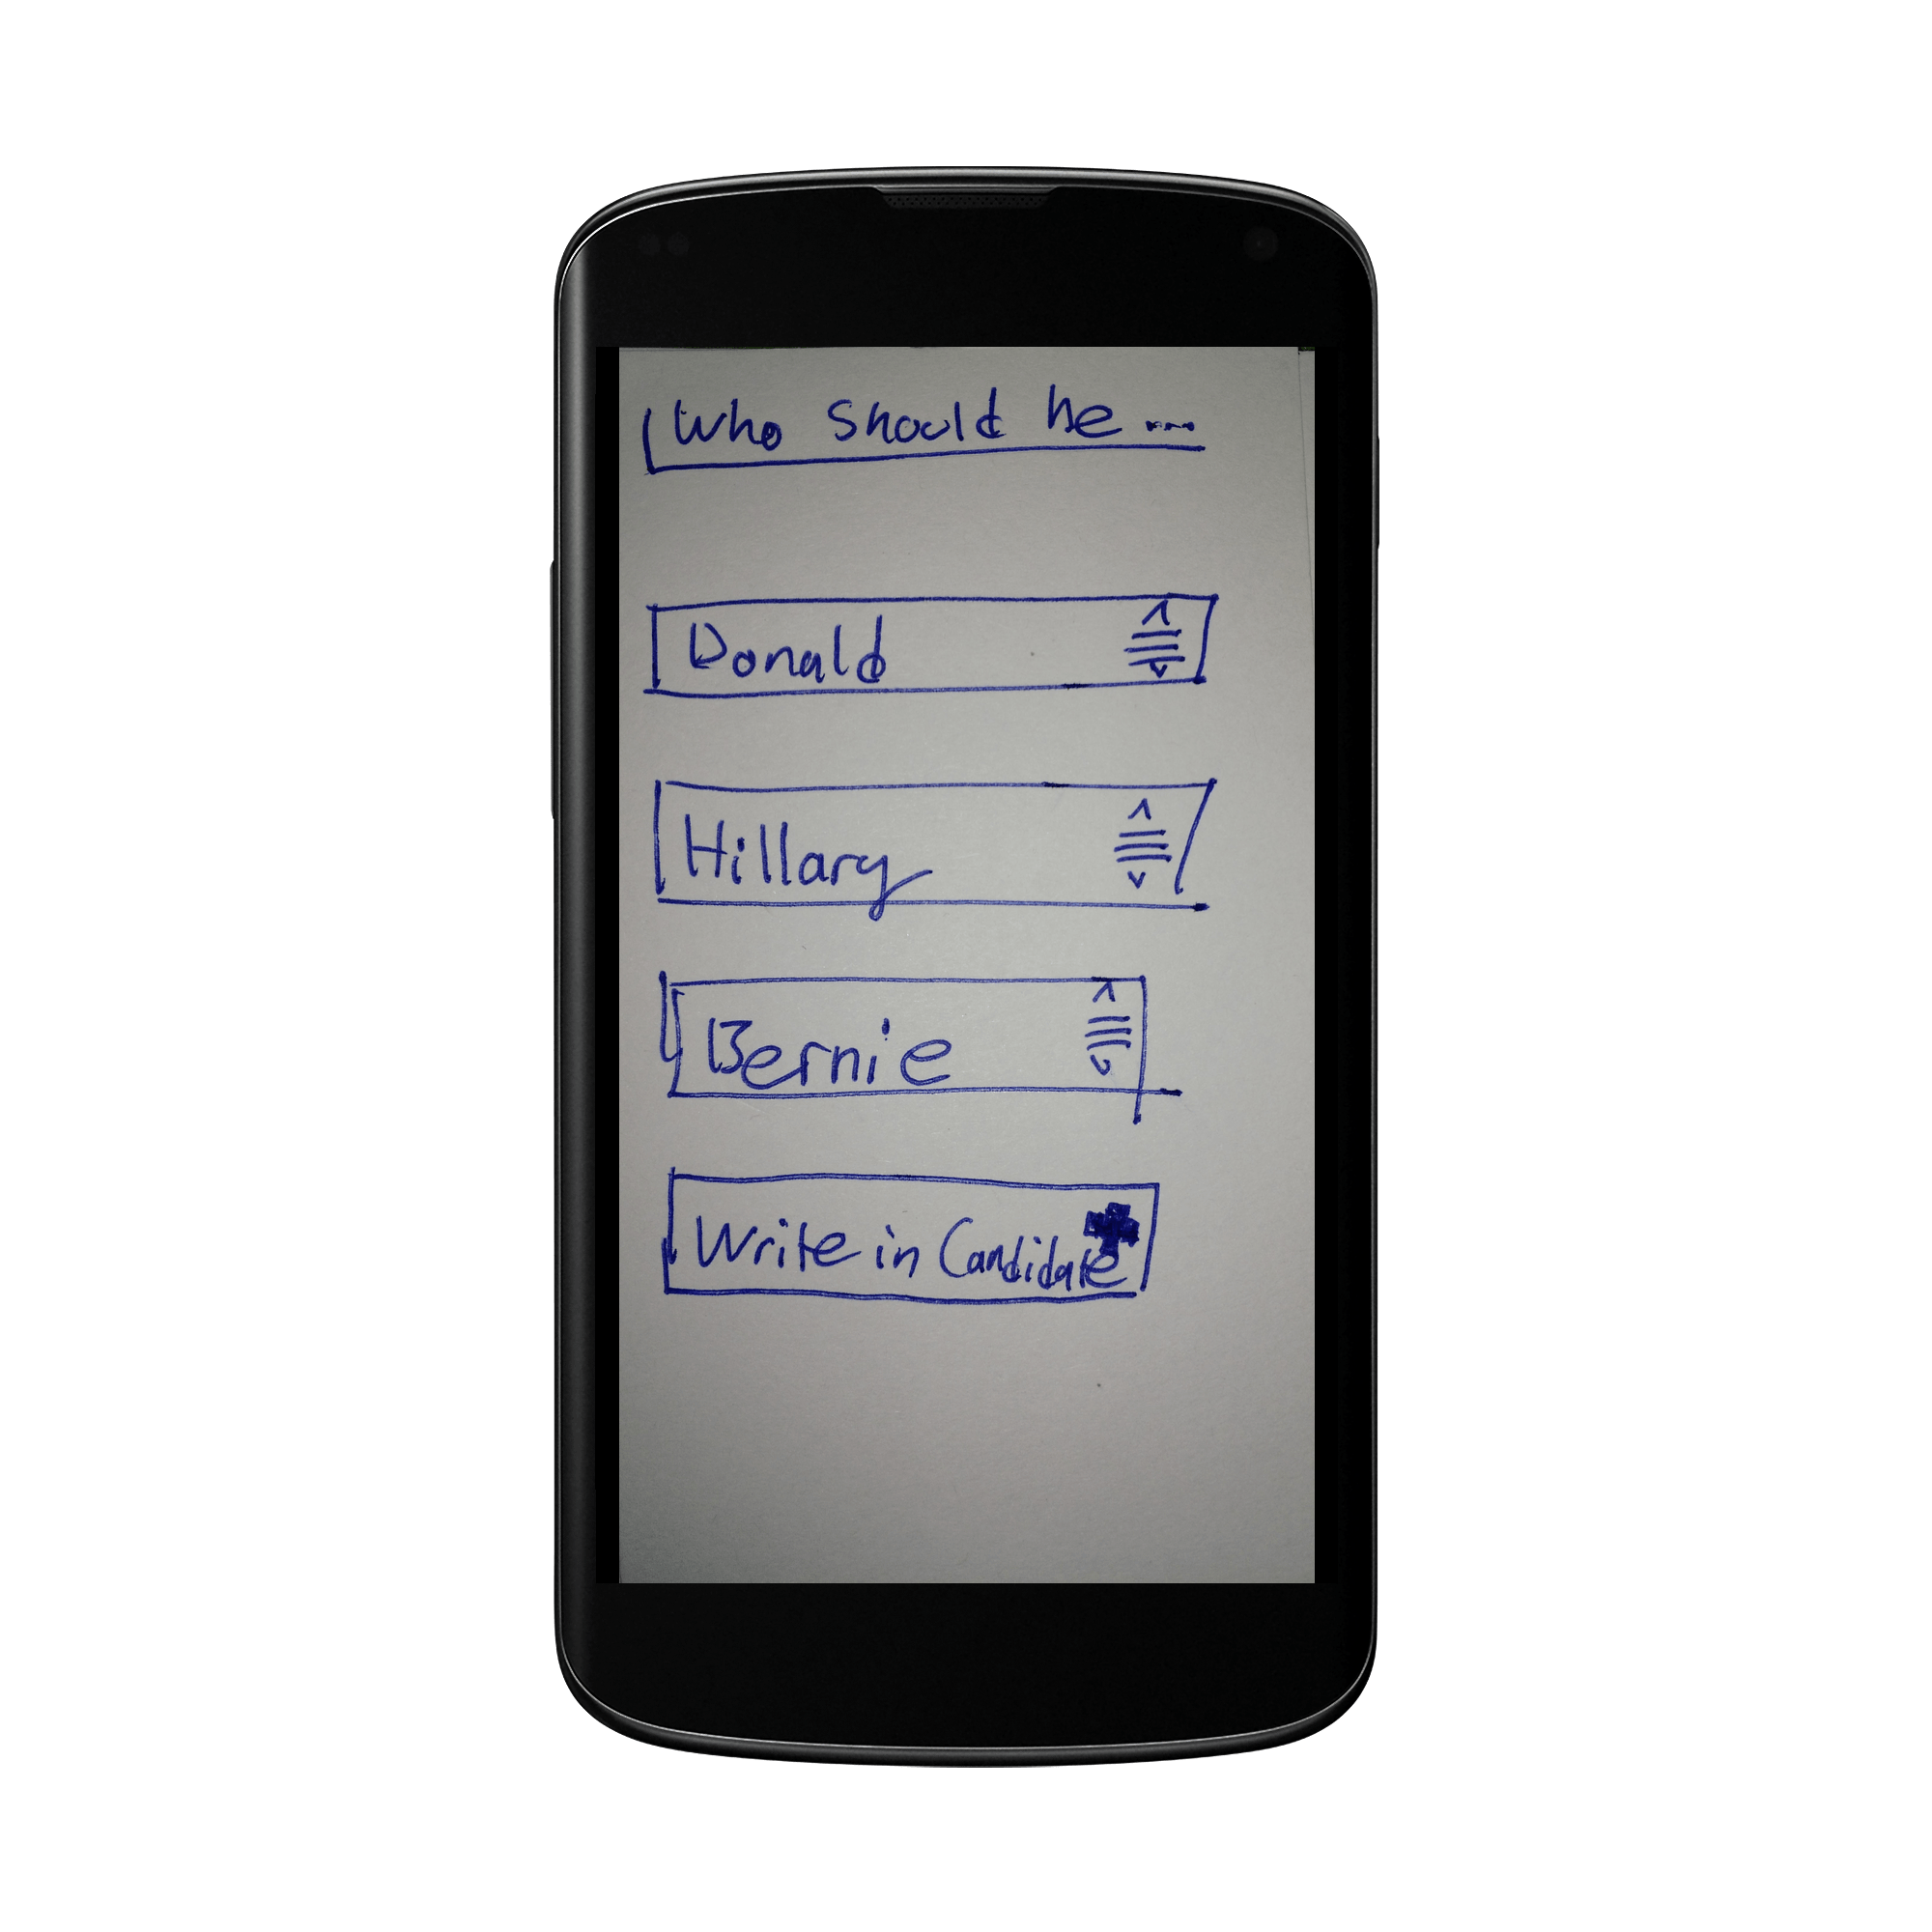 Who should be ...
Donald
Hillary
Bernie
Write in Candidate